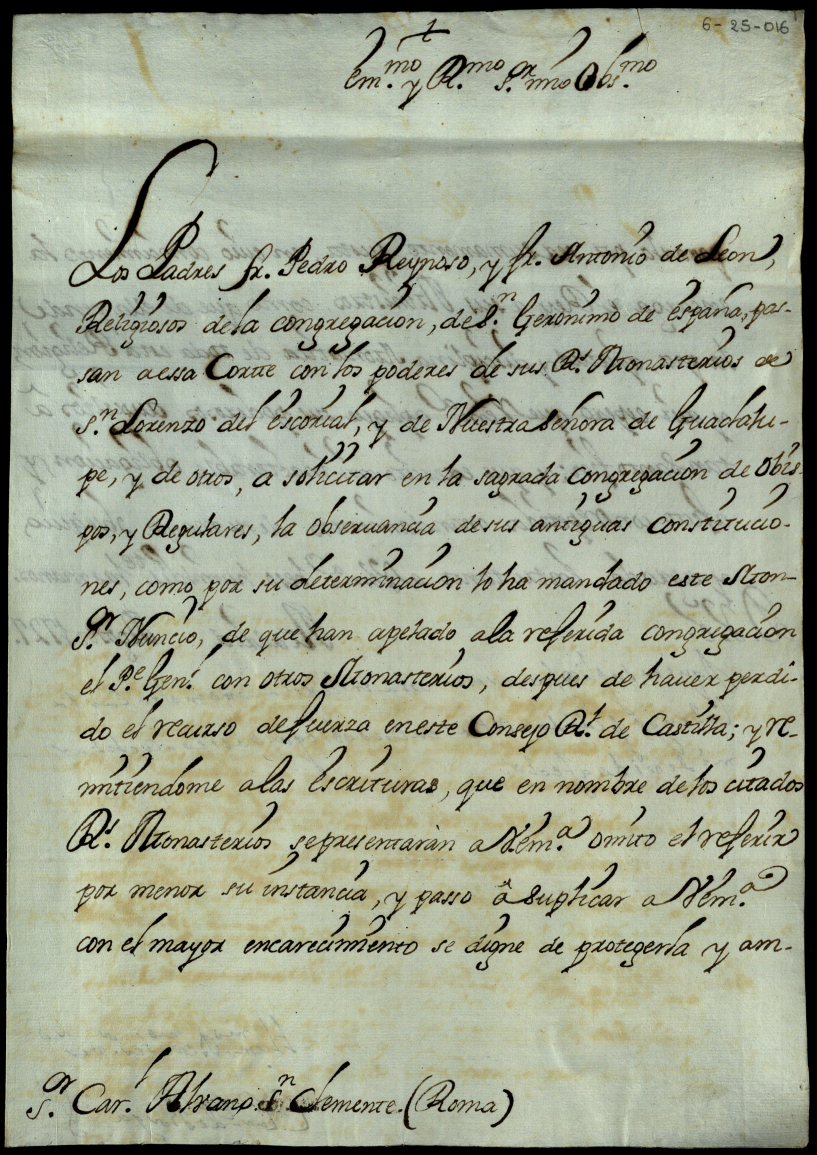 6-25-016
+
Em.mo y R.mo S.or mio Obs.mo
Los Padres fr. Pedro Reynoso, y fr. Antonio de Leon,
Religiosos dela congregacion, de S.n Geronimo de españa, pas-
san aessa Corte con los poderes de sus R.s Monasterios de
S.n Lorenzo del escorial, y de Nuestra señora de Guadalu-
pe, y de otros, a solicitar en la sagrada congregacion de Obis-
pos, y Regulares, la observancia de sus antiguas constitucio-
nes, como por su determinacion lo ha mandado este Mon-
S.or Nuncio, de que han apelado ala referida congregacion
el P.e Gen.l con otros Monasterios, despues de haver perdi-
do el recurso defuerza eneste Consejo R.l de Castilla; y re-
mitiendome alas Escrituras, que en nombre delos citados
R.s Monasterios sepresentaràn a VEm.a omito el referir
por menor su instancia, y passo à suplicar a VEm.a
con el mayor encarecimiento se digne de protegerla y am-
S.or Car.l Albano. S.n Clemente. (Roma)